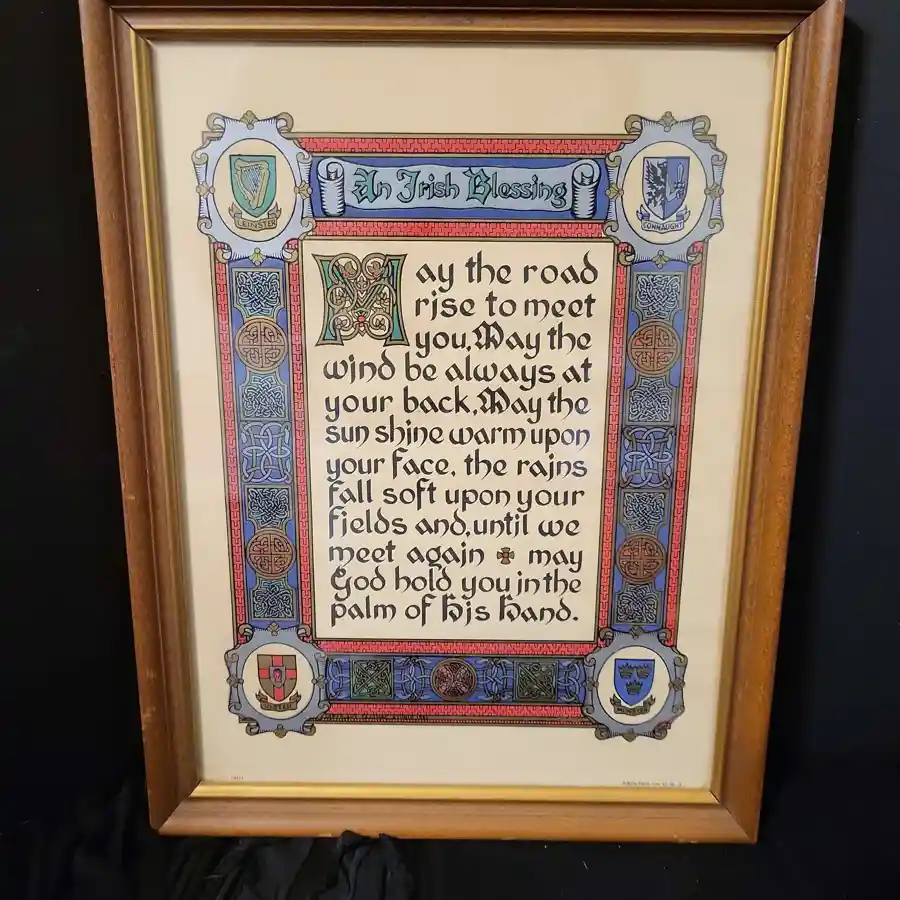 An Irish Blessing
LEINSTER
CONNAUGHT
May the road
rise to meet
you, May the
wind be always at
your back, May the
sun shine warm upon
your face, the rains
fall soft upon your
fields and, until we
meet again may
God hold you in the
palm of his hand.
ULSTER
MUNSTER